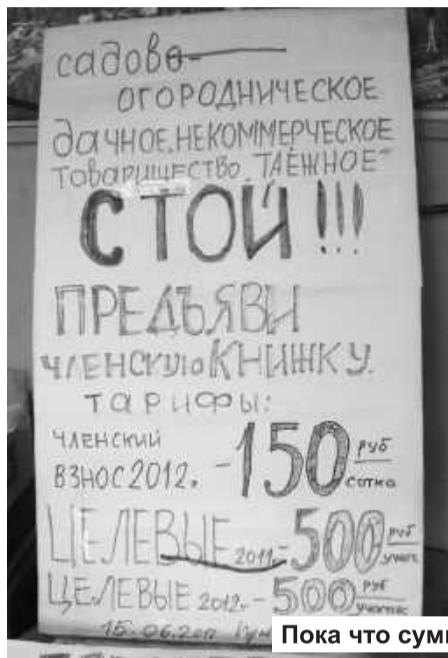 садово-
огородническое
дачное, некоммерческое
товарищество „Таёжное"
СТОЙ!!!
ПРЕДЪЯВИ
членскую КНИЖКУ.
тарифы:
членский
взнос 2012г. - 150 руб сотка
ЦЕЛЕВЫЕ 2011г. - 500 руб участ.
ЦЕЛЕВЫЕ 2012г. - 500 руб участок
15.06.2012
Пока что сум